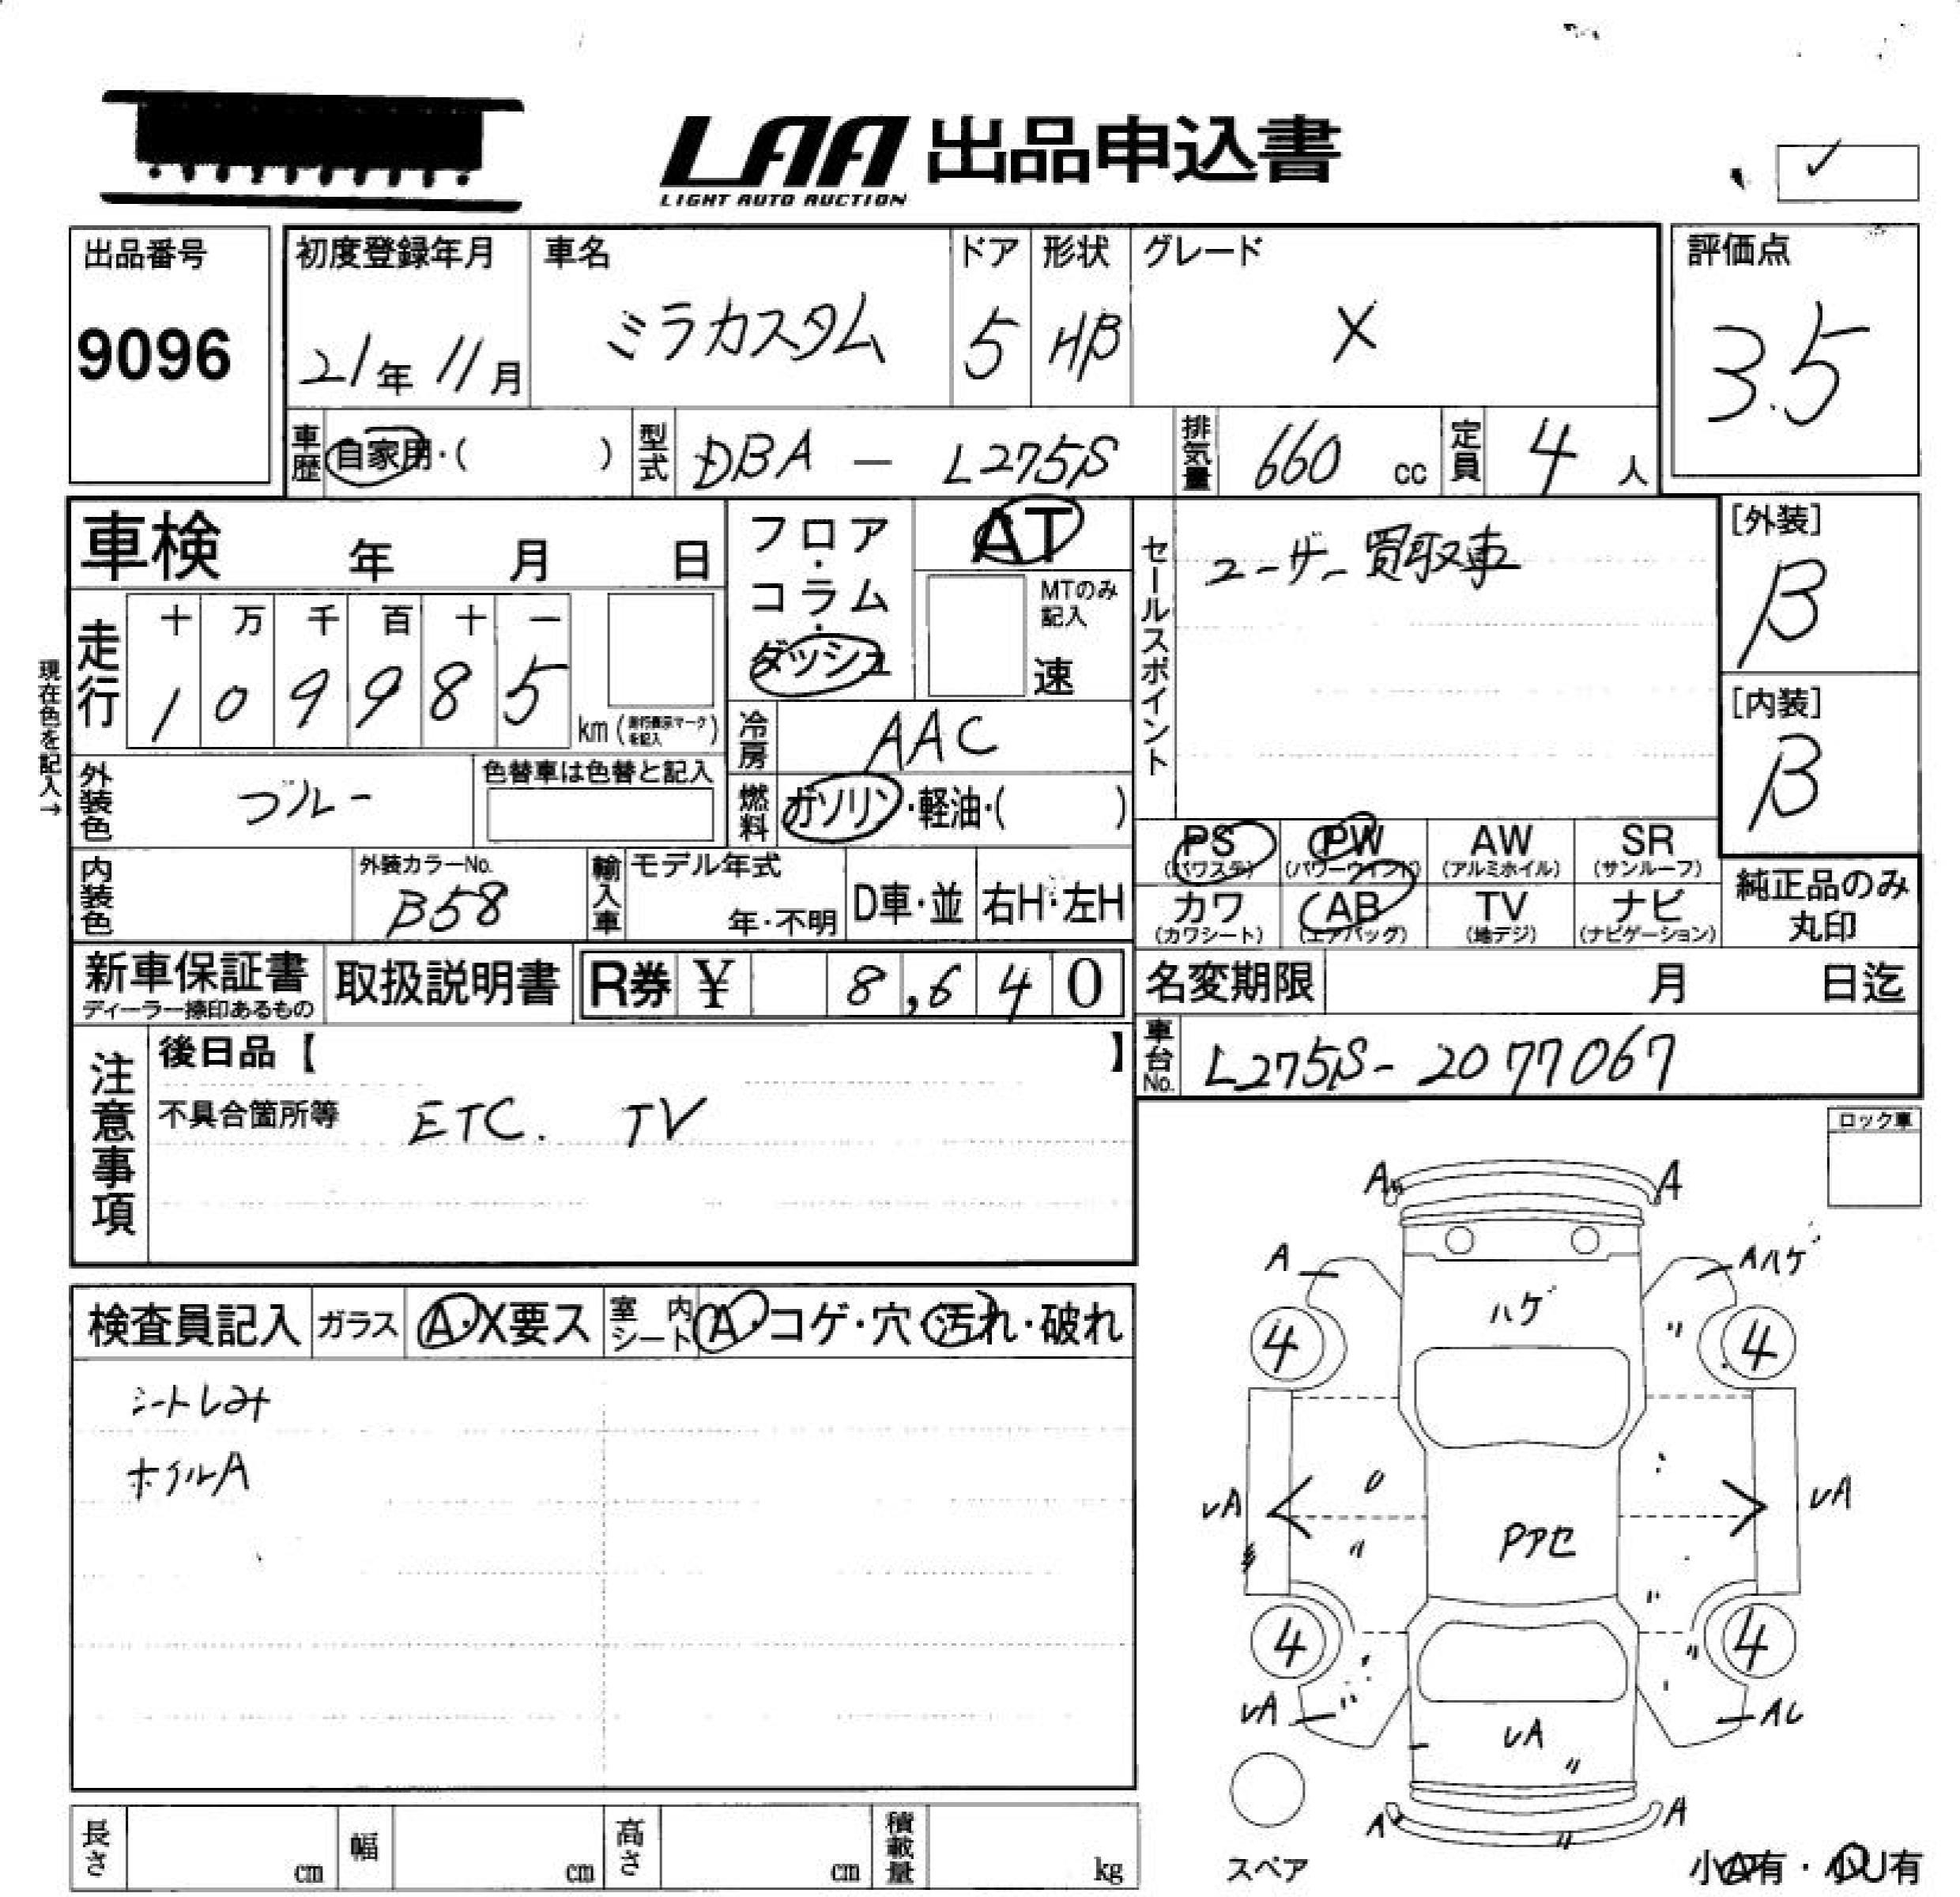 LAA 出品申込書
LIGHT AUTO AUCTION
出品番号
9096
初度登録年月
21年 11月
車名
ミラカスタム
ドア
5
形状
HB
グレード
X
評価点
3.5
車歴 自家用・( )
型式 DBA - L275S
排気量 660 cc
定員 4 人
車検 年 月 日
フロア・コラム・ダッシュ
AT
MTのみ記入
速
セールスポイント
ユーザー買取車
[外装]
B
[内装]
B
現在色を記入→
走行
十 万 千 百 十 一
1 0 9 9 8 5
km (走行表示マークを記入)
冷房 AAC
燃料 ガソリン・軽油・( )
外装色 ブルー
色替車は色替と記入
内装色
外装カラーNo.
B58
輸入車
モデル年式
年・不明
D車・並
右H・左H
PS (パワステ)
PW (パワーウインド)
AW (アルミホイル)
SR (サンルーフ)
カワ (カワシート)
AB (エアバッグ)
TV (地デジ)
ナビ (ナビゲーション)
純正品のみ丸印
新車保証書
ディーラー捺印あるもの
取扱説明書
R券 ¥ 8,640
名変期限 月 日迄
車台No. L275S-2077067
注意事項
後日品【 】
不具合箇所等 ETC. TV
ロック車
検査員記入
ガラス A・X要ス
室内シート A・コゲ・穴・汚れ・破れ
シートしみ
ホイルA
A A
A Aハゲ
ハゲ 〃
4 4
υA υA
〃 Pアセ 〃
4 4
〃
υA 〃 υA
〃
A A
〃
スペア
小A有・小U有
長さ cm
幅 cm
高さ cm
積載量 kg